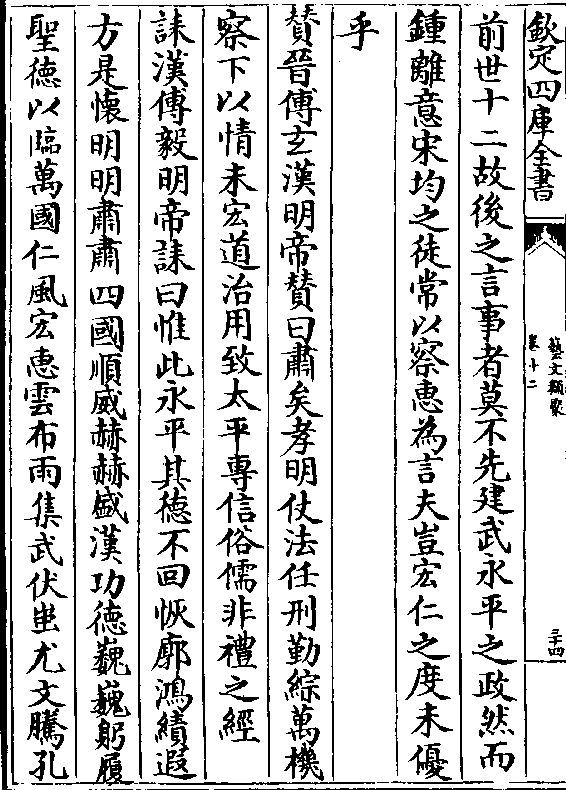 欽定四庫全書
藝文類聚
卷十二
三十四
前世十二故後之言事者莫不先建武永平之政然而
鍾離意宋均之徒常以察惠為言夫豈宏仁之度未優
乎
賛晉傅玄漢明帝賛曰肅矣孝明仗法任刑勤綜萬機
察下以情未宏道治用致太平專信俗儒非禮之經
誄漢傅毅明帝誄曰惟此永平其德不回恢廓鴻績遐
方是懷明明肅肅四國順威赫赫盛漢功德巍巍躬履
聖德以臨萬國仁風宏惠雲布雨集武伏蚩尤文騰孔